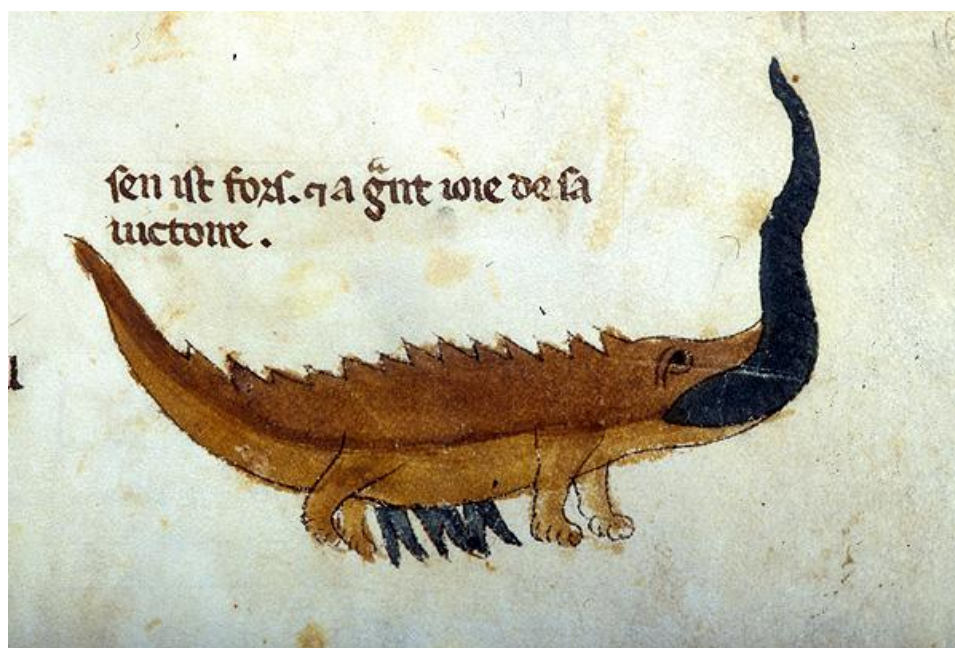 sen ist fors. ⁊ a gᵃnt ioie de sa
uictoire .